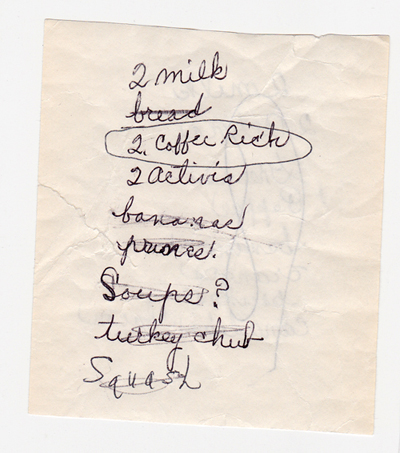 2 milk
bread
2. Coffee Rich
2 activia
bananas
prunes.
Soups?
turkey chub
Squash